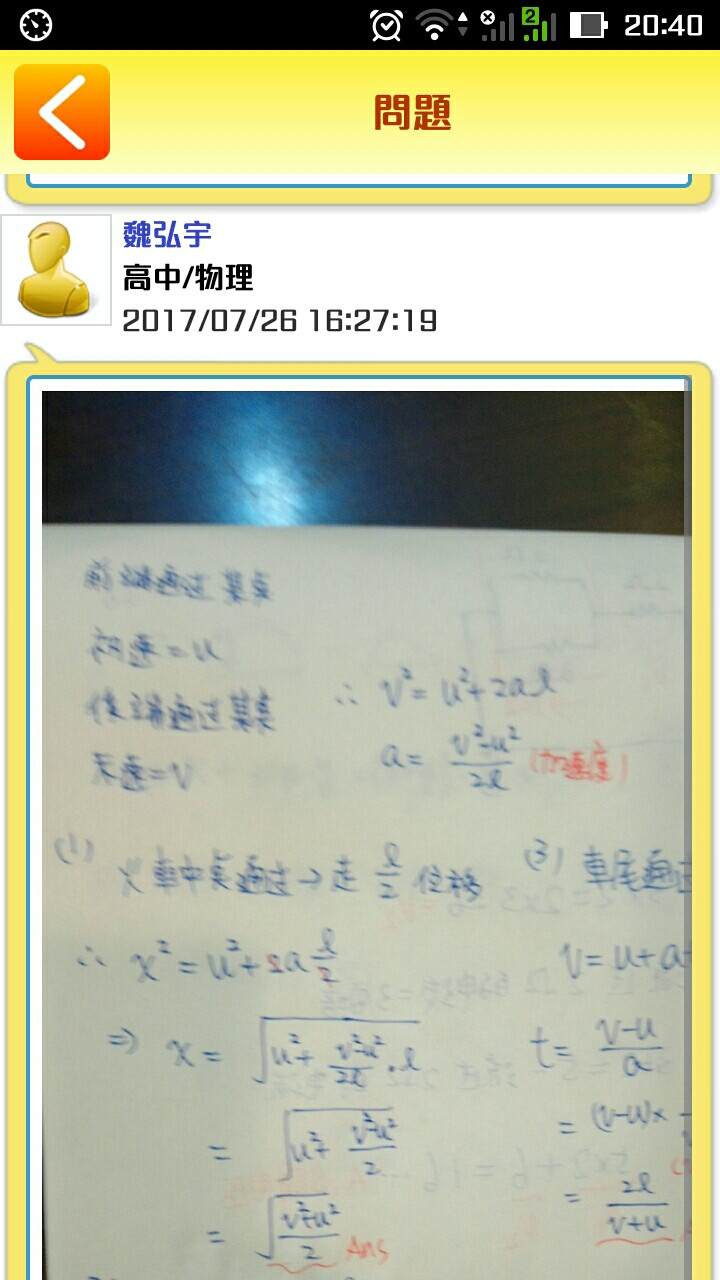 2 20:40
問題
魏弘宇
高中/物理
2017/07/26 16:27:19
前端通过某点
初速=u
後端通过某点
末速=v
∴ v²=u²+2al
a= v²-u²/2l (加速度)
(1) 火車中点通过→走 l/2 位移
∴ x²=u²+2a l/2
⇒ x= √(u²+ v²-u²/2l ·l)
= √(u²+ v²-u²/2)
= √(v²+u²/2) Ans
(3) 車尾通过
v=u+at
t= v-u/a
= (v-u)×
= 2l/v+u